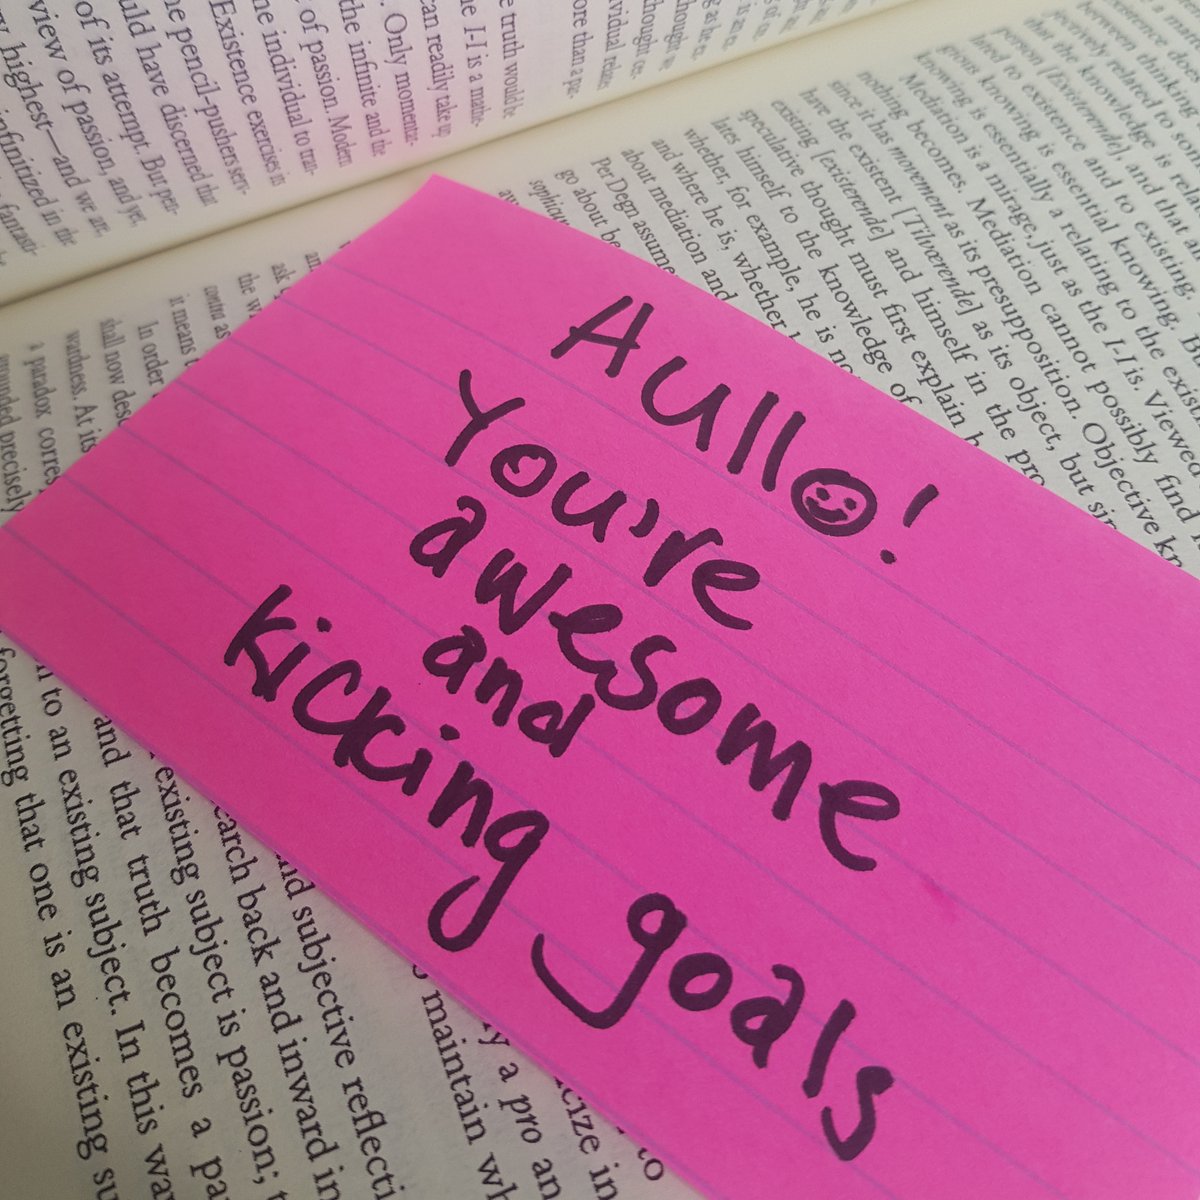 Hullo!
You're
awesome
and
kicking goals
e truth would be
he I-I is a mathe-
can readily take up
. Only momentar-
the infinite and the
of passion. Modern
he individual to tran-
Existence exercises in
he pencil-pushers serv-
uld have discerned that
of its attempt. But per-
view of passion, and yet,
highest—and we are
infinitized in the
fantasti-
ore than a pas-
ividual relates
thought cer-
thought, we
existence does
between thinking
that the knowledge is related to
person [Existerende], and that all
lated to existence and to existing.
gnous knowing is essential knowing. B
knowing is essentially a relating to the existing
Mediation is a mirage, just as the I-I is. Viewed
nothing becomes. Mediation cannot possibly find
since it has movement as its presupposition. Objective kn
have the existent [Tilværende] as its object, but sin
existing [existerende] and himself in the pro
speculative thought must first explain h
lates himself to the knowledge of
whether, for example, he is no
and where he is, whether
about mediation and
Per Degn assume
go about be
sophicu
aw
an
ask
the w
contra as
it means
In order
shall now desc
wardness. At its
a paradox corres
grounded precisely
n to an existing subject. In this wa
forgetting that one is an existing su
and that truth becomes a pa
existing subject is passion; t
earch back and inward in
nd subjective reflecti
maintain wh
y a pro an
cize in
to